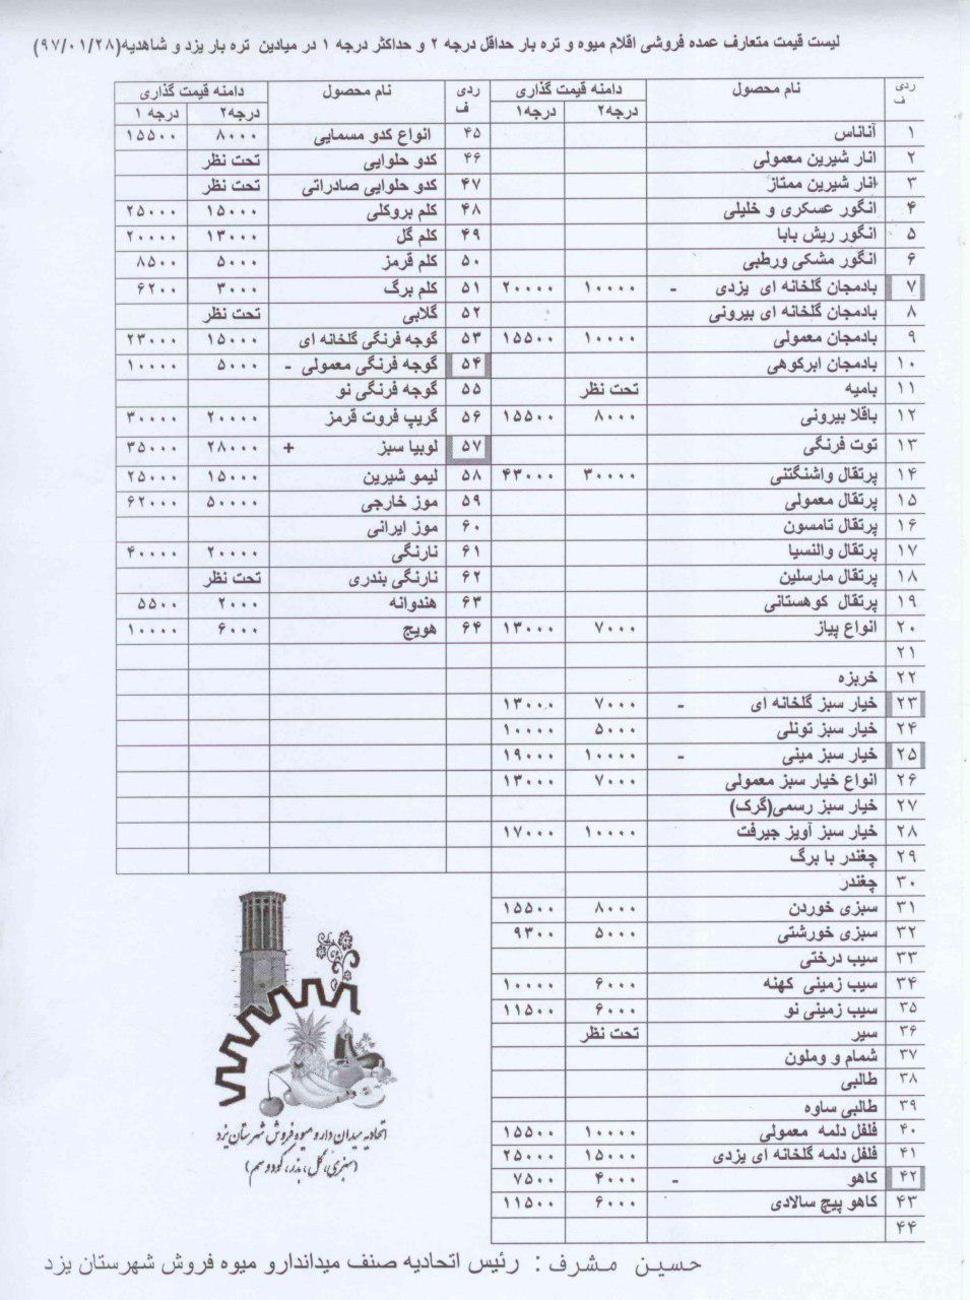 لیست قیمت متعارف عمده فروشی اقلام میوه و تره بار حداقل درجه ۲ و حداکثر درجه ۱ در میادین تره بار یزد و شاهدیه(۹۷/۰۱/۲۸)
ردیف نام محصول دامنه قیمت گذاری
درجه۲ درجه۱
۱ آناناس
۲ انار شیرین معمولی
۳ انار شیرین ممتاز
۴ انگور عسکری و خلیلی
۵ انگور ریش بابا
۶ انگور مشکی ورطبی
۷ بادمجان گلخانه ای یزدی - ۱۰۰۰۰ ۲۰۰۰۰
۸ بادمجان گلخانه ای بیرونی
۹ بادمجان معمولی ۱۰۰۰۰ ۱۵۵۰۰
۱۰ بادمجان ابرکوهی
۱۱ بامیه تحت نظر
۱۲ باقلا بیرونی ۸۰۰۰ ۱۵۵۰۰
۱۳ توت فرنگی
۱۴ پرتقال واشنگتنی ۳۰۰۰۰ ۴۳۰۰۰
۱۵ پرتقال معمولی
۱۶ پرتقال تامسون
۱۷ پرتقال والنسیا
۱۸ پرتقال مارسلین
۱۹ پرتقال کوهستانی
۲۰ انواع پیاز ۷۰۰۰ ۱۳۰۰۰
۲۱
۲۲ خربزه
۲۳ خیار سبز گلخانه ای - ۷۰۰۰ ۱۳۰۰۰
۲۴ خیار سبز تونلی ۵۰۰۰ ۱۰۰۰۰
۲۵ خیار سبز مینی - ۱۰۰۰۰ ۱۹۰۰۰
۲۶ انواع خیار سبز معمولی ۷۰۰۰ ۱۳۰۰۰
۲۷ خیار سبز رسمی(گرک)
۲۸ خیار سبز آویز جیرفت ۱۰۰۰۰ ۱۷۰۰۰
۲۹ چغندر با برگ
۳۰ چغندر
۳۱ سبزی خوردن ۸۰۰۰ ۱۵۵۰۰
۳۲ سبزی خورشتی ۵۰۰۰ ۹۳۰۰
۳۳ سیب درختی
۳۴ سیب زمینی کهنه ۶۰۰۰ ۱۰۰۰۰
۳۵ سیب زمینی نو ۶۰۰۰ ۱۱۵۰۰
۳۶ سیر تحت نظر
۳۷ شمام و وملون
۳۸ طالبی
۳۹ طالبی ساوه
۴۰ فلفل دلمه معمولی ۱۰۰۰۰ ۱۵۵۰۰
۴۱ فلفل دلمه گلخانه ای یزدی ۱۵۰۰۰ ۲۵۰۰۰
۴۲ کاهو - ۴۰۰۰ ۷۵۰۰
۴۳ کاهو پیچ سالادی ۶۰۰۰ ۱۱۵۰۰
۴۴
ردیف نام محصول دامنه قیمت گذاری
درجه۲ درجه ۱
۴۵ انواع کدو مسمایی ۸۰۰۰ ۱۵۵۰۰
۴۶ کدو حلوایی تحت نظر
۴۷ کدو حلوایی صادراتی تحت نظر
۴۸ کلم بروکلی ۱۵۰۰۰ ۲۵۰۰۰
۴۹ کلم گل ۱۳۰۰۰ ۲۰۰۰۰
۵۰ کلم قرمز ۵۰۰۰ ۸۵۰۰
۵۱ کلم برگ ۳۰۰۰ ۶۲۰۰
۵۲ گلابی تحت نظر
۵۳ گوجه فرنگی گلخانه ای ۱۵۰۰۰ ۲۳۰۰۰
۵۴ گوجه فرنگی معمولی - ۵۰۰۰ ۱۰۰۰۰
۵۵ گوجه فرنگی نو
۵۶ گریپ فروت قرمز ۲۰۰۰۰ ۳۰۰۰۰
۵۷ لوبیا سبز + ۲۸۰۰۰ ۳۵۰۰۰
۵۸ لیمو شیرین ۱۵۰۰۰ ۲۵۰۰۰
۵۹ موز خارجی ۵۰۰۰۰ ۶۲۰۰۰
۶۰ موز ایرانی
۶۱ نارنگی ۲۰۰۰۰ ۴۰۰۰۰
۶۲ نارنگی بندری تحت نظر
۶۳ هندوانه ۲۰۰۰ ۵۵۰۰
۶۴ هویج ۶۰۰۰ ۱۰۰۰۰
اتحادیه میدان دار و میوه فروش شهرستان یزد
(سبزی، گل، بذر، کود و سم)
حسین مشرف : رئیس اتحادیه صنف میداندارو میوه فروش شهرستان یزد